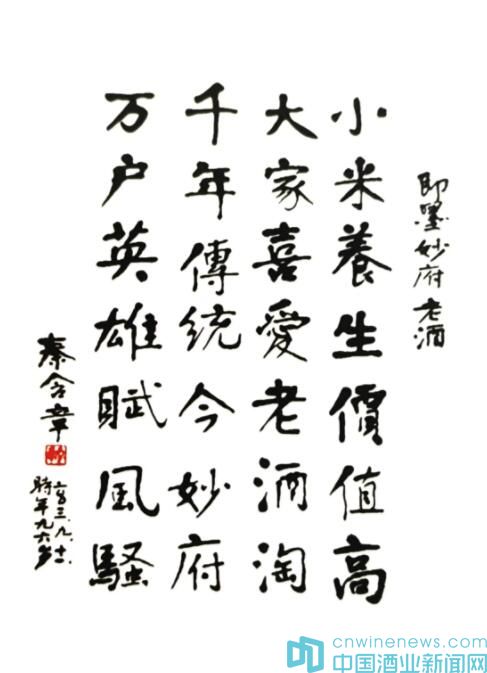 即墨妙府老酒
小米養生價值高
大家喜愛老酒淘
千年傳統今妙府
万户英雄賦風騷
秦含章
二〇〇三.九.十二.
時年九六岁
cnwinenews.com
中国酒业新闻网